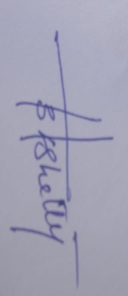 B K Shetty